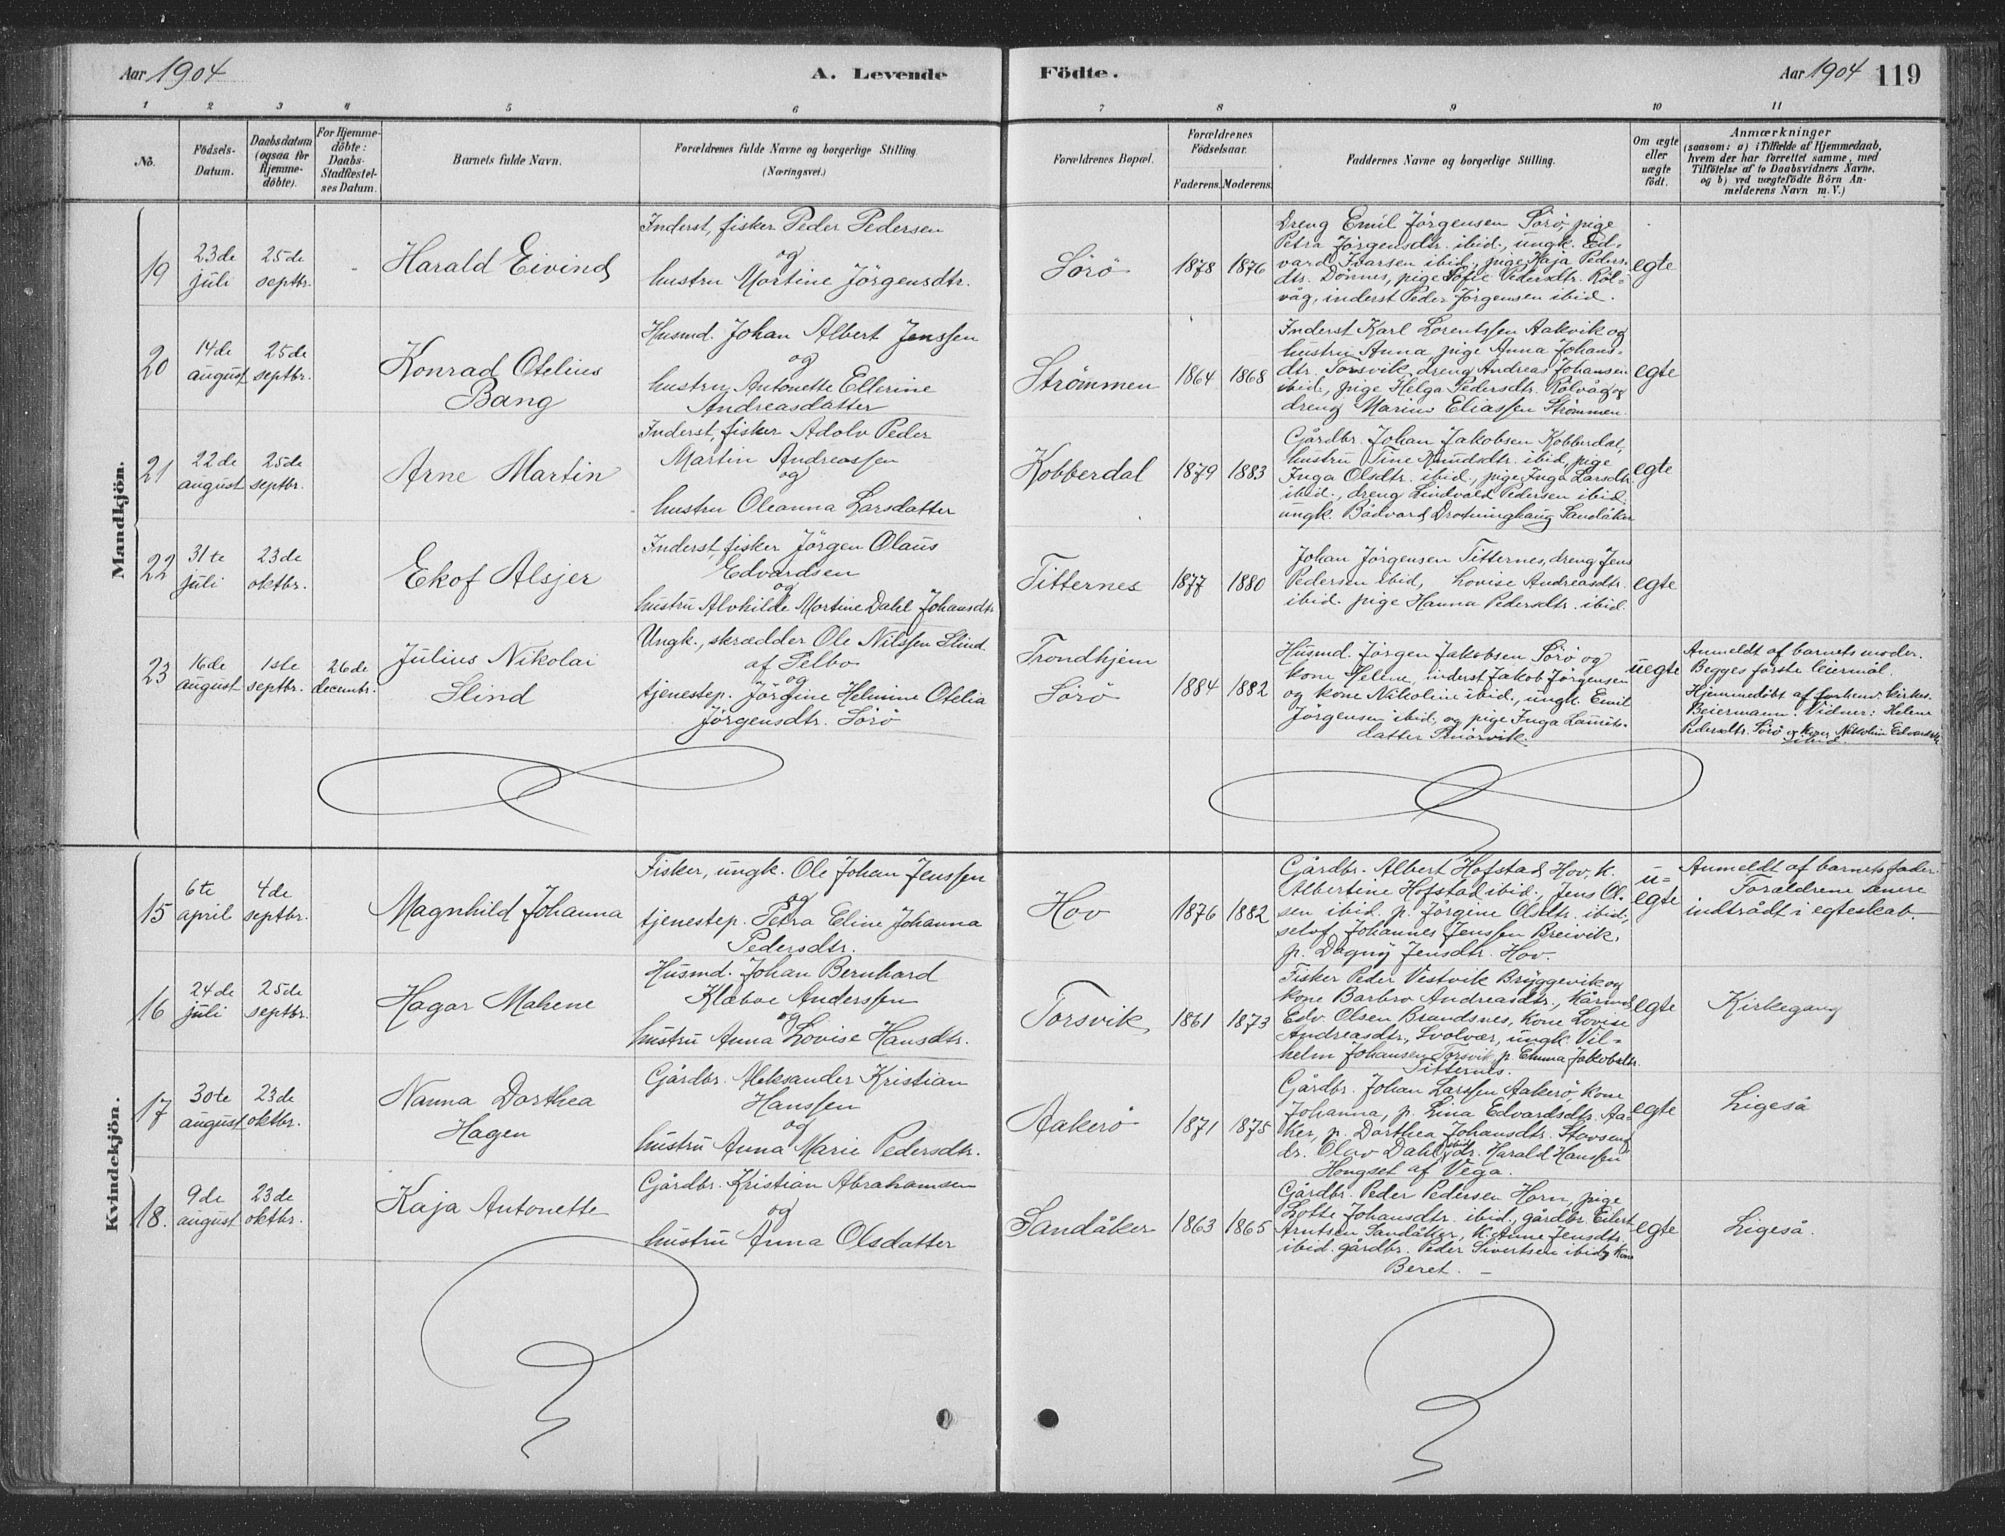 Aar 1904
A. Levende
Födte.
Aar 1904 119
1 2 3 4 5 6 7 8 9 10 11
No.
Födsels-
Datum.
Daabsdatum
(ogsaa för
Hjemme-
döbte).
For Hjemme-
döbte:
Daabs-
Stadfæstel-
ses Datum.
Barnets fulde Navn.
Forældrenes fulde Navne og borgerlige Stilling
(Næringsvei.)
Forældrenes Bopæl.
Forældrenes
Födselsaar.
Faderens. Moderens.
Faddernes Navne og borgerlige Stilling.
Om ægte
eller
uægte
födt.
Anmærkninger
(saasom: a) i Tilfælde af Hjemmedaab,
hvem der har forrettet samme, med
Tilföielse af to Daabsvidners Navne,
og b) ved uægtefödte Börn An-
melderens Navn m. V.)
Mandkjön.
19
23de
juli
25de
septbr.
Harald Eivind
Inderst, fisker Peder Pedersen
og
hustru Martine Jörgensdtr.
Sörö
1878 1876
Dreng Emil Jörgensen Sörö, pige
Petra Jörgensdtr. ibid., ungk. Ed-
vard Ivarsen ibid., pige Kaja Peders-
dtr. Dönnes, pige Sofie Pedersdtr. Röl-
våg, inderst Peder Jörgensen ibid.
egte
20
14de
august
25de
septbr.
Konrad Otelius
Bang
Husmd. Johan Albert Jenssen
og
hustru Antonette Ellerine
Andreasdatter
Strömmen
1864 1868
Inderst Karl Lorentssen Aakvik og
hustru Anna, pige Anna Johans-
dtr. Torsvik, dreng Andreas Johansen
ibid., pige Helga Pedersdtr. Rölvåg og
dreng Marius Eliassen Strömmen.
egte
21
22de
august
25de
septbr.
Arne Martin
Inderst, fisker Adolv Peder
Martin Andreassen
og
hustru Oleanna Larsdatter
Kobberdal
1879 1883
Gårdbr. Johan Jakobsen Kobberdal,
hustru Tine Knudsdtr. ibid, pige
Inga Olsdtr. ibid., pige Inga Larsdtr.
ibid., dreng Lindvald Pedersen ibid.
ungk. Bådvard Dronninghaug Sandåker
egte
22
31te
juli
23de
oktbr.
Ekof Alsjer
Inderst, fisker Jörgen Olaus
Edvardsen
og
hustru Alvhilde Martine Dahl Johansdtr
Titternes
1877 1880
Johan Jörgensen Titternes, dreng Jens
Pedersen ibid, Lovise Andreasdtr.
ibid. pige Hanna Pedersdtr. ibid.
egte
23
16de
august
1ste
septbr.
26de
decembr.
Julius Nikolai
Slind
Ungk., skrædder Ole Nilssen Slind
af Selbo
og
tjenestep. Jörgine Helmine Otelia
Jörgensdtr. Sörö
Trondhjem
Sörö
1884 1882
Husmd. Jörgen Jakobsen Sörö og
kone Helene, inderst Jakob Jörgensen
og kone Nikoline ibid., ungk. Emil
Jörgensen ibid, og pige Inga Laurits-
datter
uegte
Anmeldt af barnets moder.
Begges förste leiermål.
Hjemmedöbt af forhenv. kirkes.
Beiermann. Vidner: Helene
Pedersdtr. Sörö og Nikoline Edvardsdtr
ibid.
Kvindekjön.
15
6te
april
4de
septbr.
Magnhild Johanna
Fisker, ungk. Ole Johan Jenssen
og
tjenestep. Petra Eline Johanna
Pedersdtr.
Hov
1876 1882
Gårdbr. Albert Hofstad Hov, K.
Albertine Hofstad ibid., Jens Ol-
sen ibid. p. Jörgine Olsdtr. ibid.,
selvf. Johannes Jenssen Breivik,
p. Dagny Jensdtr. Hov.
u-
egte
Anmeldt af barnets fader.
Forældrene senere
indtrådt i egteskab.
16
24de
juli
25de
septbr.
Hagar Malene
Husmd. Johan Bernhard
Klæboe Anderssen
og
hustru Anna Lovise Hansdtr.
Torsvik
1861 1873
Fisker Peder Vestvik Bryggevik og
kone Barbro Andreasdtr.,
Edv. Olsen Brandsnes, kone Lovise
Andreasdtr., Svolvær, ungk. Vil-
helm Johansen Torsvik, p. Emma Jakobsdtr.
Titternes.
egte
Kirkegang
17
30te
august
23de
oktbr.
Nanna Dorthea
Hagen
Gårdbr. Aleksander Kristian
Hanssen
og
hustru Anna Marie Pedersdtr.
Aakerö
1871 1875
Gårdbr. Johan Larssen Aakerö, kone
Johanna, p. Lina Edvardsdtr. Aa-
ker, p. Dorthea Johansdtr. Stavseng
dr. Olav Dahl ibid dr. Harald Hanssen
Hongset af Vega.
egte
Ligeså
18.
9de
august
23de
oktbr.
Kaja Antonette
Gårdbr. Kristian Abrahamsen
og
hustru Anna Olsdatter
Sandåker
1863 1865
Gårdbr. Peder Pedersen Horn, pige
Lotte Johansdtr. ibid., gårdbr. Eilert
Arntsen Sandåker, K. Anne Jensdtr.
ibid. gårdbr. Peder Sivertsen ibid og kone
Beret. –
egte
Ligeså.